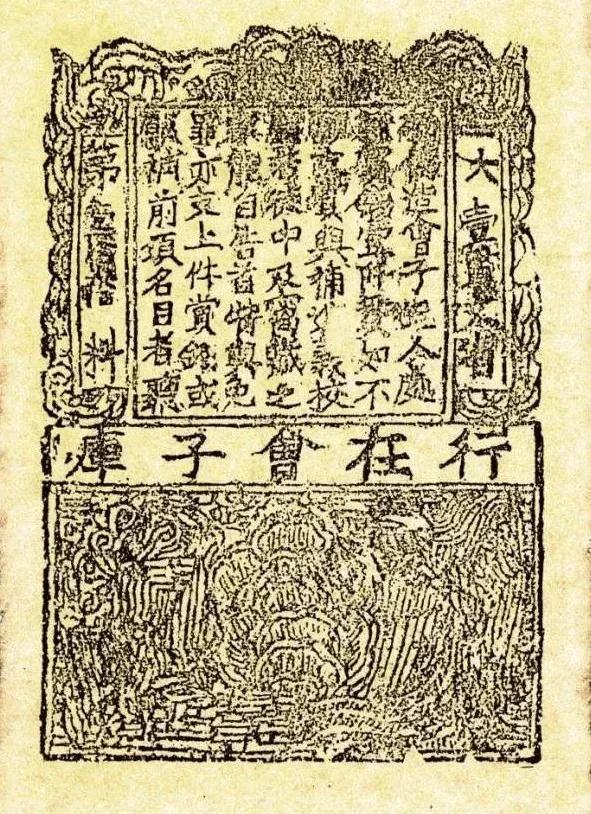 大壹貫文省
造會子犯人處
賞錢壹阡貫如不
支賞與補進義校
徒中及窩藏之
能自告首特與免
罪亦支上件賞錢或
願補前項名目者聽
第壹料
行在會子庫